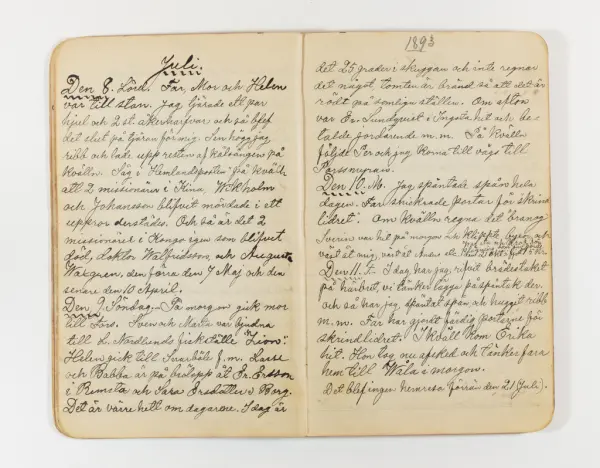 Juli.
Den 8. Lörd. Far, Mor och Helen
var till stan. Jag tjärade ett par
hjul och 2 st. åkerharfvar och så blef
det slut på tjäran för mig. Sen högg jag
ribb och batt upp resten af kålsängen på
kvälln. Såg i Hemlandsposten i kväll
att 2 missionärer i Kina, Wikholm
och Johansson blifvit mördade i ett
uppror derstädes. Och så är det 2
missionärer i Kongo igen som blifvit
död, doktor Walfridsson, och Augusta
Wargren, den förra den 7 Maj och den
senare den 10 April.
Den 9. Söndag. På morgon gick mor
till Tors. Sven och Marta var bjudna
till L. Nordlunds fiskställe "Zion".
Helen gick till Snarböle f.m. Lasse
och Babba är på brölopp åt Er. Ersson
i Rimsta och Sara Ersdotter i Berg.
Det är värre hett om dagarne. I dag är
1893
det 25 grader i skuggan och inte regnar
det något, tomten är bränd så att det är
rödt på somliga ställen. Om afton
var Er. Sundqvist i Ingsta hit och be-
talde fordärende m. m. Så kvälln
följde Per och jag Korna till vägs till
Parssmyran.
Den 10. M. Jag späntade spån hela
dagen. Far snickrade portar för skrind
lidret. Om kvälln regna det bra nog
Sverin var hit på morgon och klippte
Den 11. T. I dag har jag rifvit brädestaket
på häsbret, vi tänker lägga på späntak der.
och så har jag späntat spån och huggit ribb
m. m. Far har gjordt färdig portarne för
skrindlidret. I kväll kom Erika
hit. Hon tog nu afsked och tänker fara
hem till Wåla i morgon.
Det blef ingen hemresa (förrän den 21 Juli).